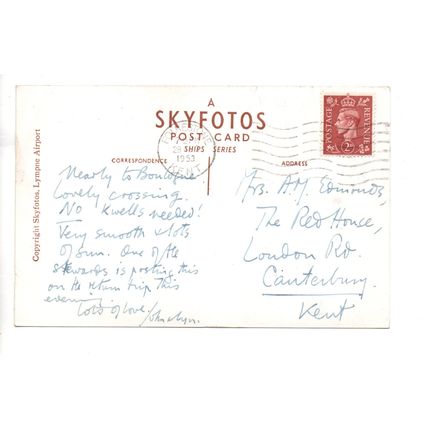 A
SKYFOTOS
POST CARD
SHIPS SERIES
CORRESPONDENCE
ADDRESS
Copyright Skyfotos, Lympne Airport
1953
POSTAGE
REVENUE
2D
Nearly to Boulogne
Lovely crossing.
No Kwells needed!
Very smooth & lots
of sun. One of the
stewards is posting this
on the return trip this
evening
Lots of love
Mrs. A.M. Edmonds,
The Red House,
London Rd.
Canterbury.
Kent